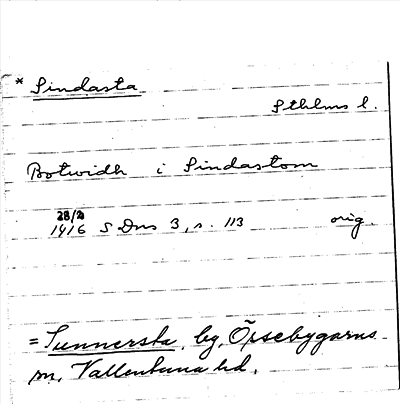 * Sindasta
Sthlms l.
Botwidh i Sindastom
28/2
1416 SDns 3, s. 113 orig.
= Sunnersta, by, Össebygarns
sn, Vallentuna hd.